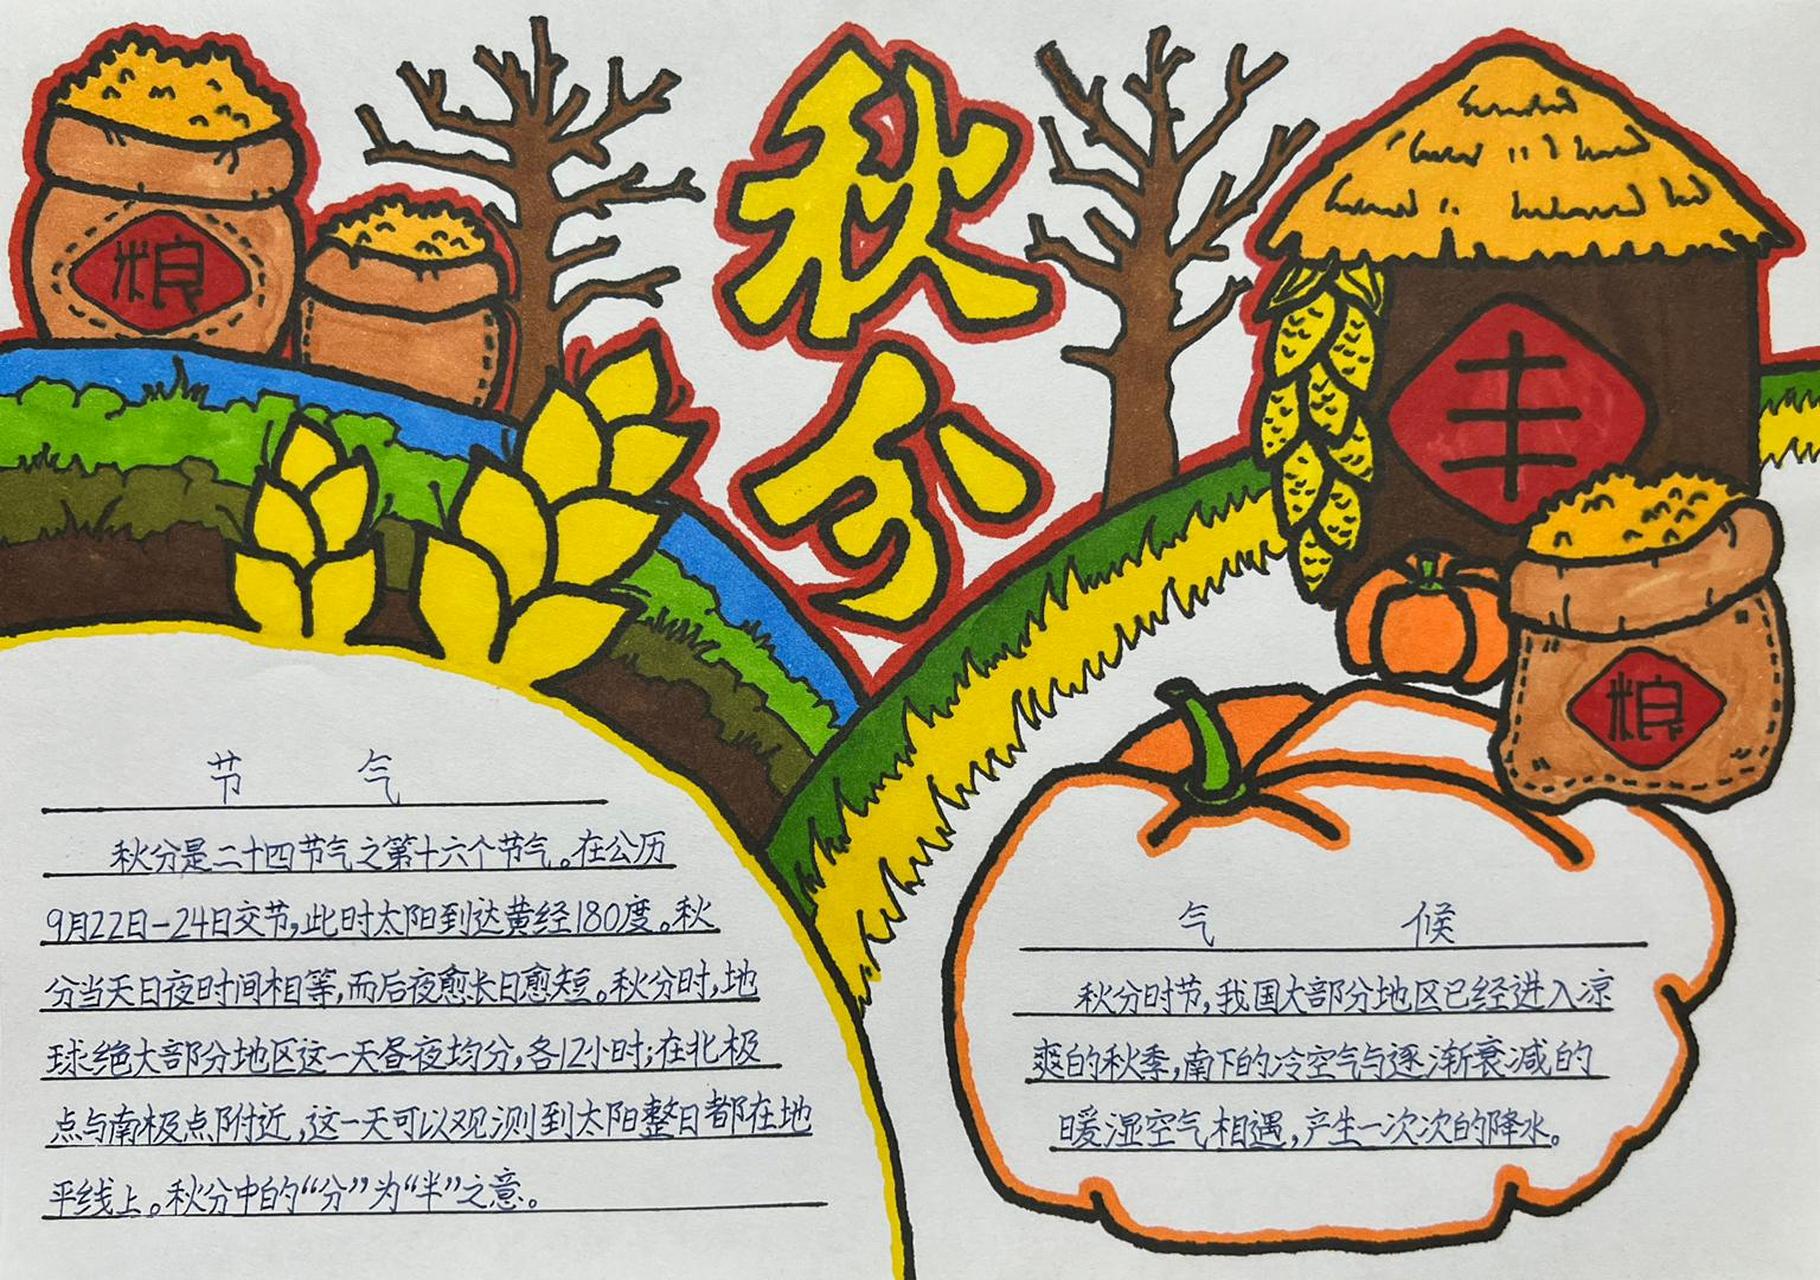 秋分
粮
丰
粮
节 气
秋分是二十四节气之第十六个节气。在公历
9月22日-24日交节,此时太阳到达黄经180度。秋
分当天日夜时间相等,而后夜愈长日愈短。秋分时,地
球绝大部分地区这一天昼夜均分,各12小时;在北极
点与南极点附近,这一天可以观测到太阳整日都在地
平线上。秋分中的“分”为“半”之意。
气 候
秋分时节,我国大部分地区已经进入凉
爽的秋季,南下的冷空气与逐渐衰减的
暖湿空气相遇,产生一次次的降水。